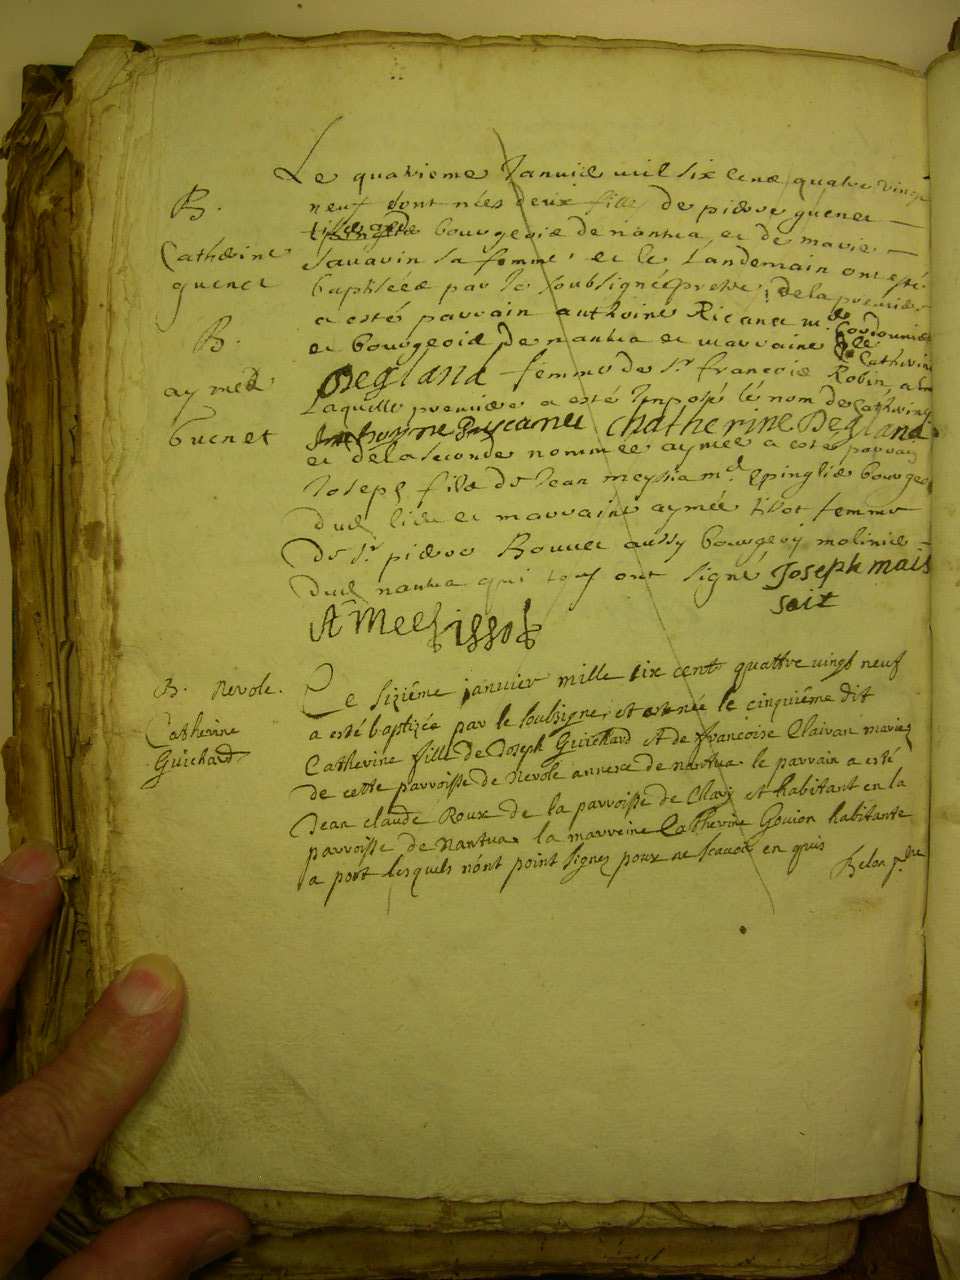 Le quatrieme Janvie mil six cent quatre vingt
B.
neuf sont nées deux filles de pierre guenet
bourgeois de nantua et de marie
Catherine
guenet
Savarin sa femme, et le landemain ont esté
baptiséés par le soubsigné prebtre, de la premiere
a esté parrain anthoine Ricanet md Cordounier
B.
et bourgeois de nantua et marraine Catherine
aymeé
Guenet
Degland femme de sr. francois Robin, a
Laquelle premiere a esté Imposé le nom de Catherine
chatherine Degland
et de la seconde nommeé aymeé a esté parrain
Joseph filz de Jean meyssia md. Epinglié bourgeois
dud. lieu et marraine aymeé tissot femme
de sr. pierre Bouvet aussy bourgeoy molinié
dud. nantua qui tous ont signé Joseph mais
seit
AMeé tissot
B. Nevole.
Catherine
Guichard
Ce siziême janvier mille six cent quattre vingt neuf
a esté baptizée par le soubsigné, et estnée le cinquiême dit
Catherine fille de Joseph Guichard et de francoise Claivan mariez
de cette parroisse de Nevole annexe de nantua le parrain a esté
Jean claude Roux de la parroisse de et habitant en la
parroisse de Nantua, la marreine Catherine Gouion habitante
a port lesquels n'ont point signez pour ne scavoir en quis
Belon ptre